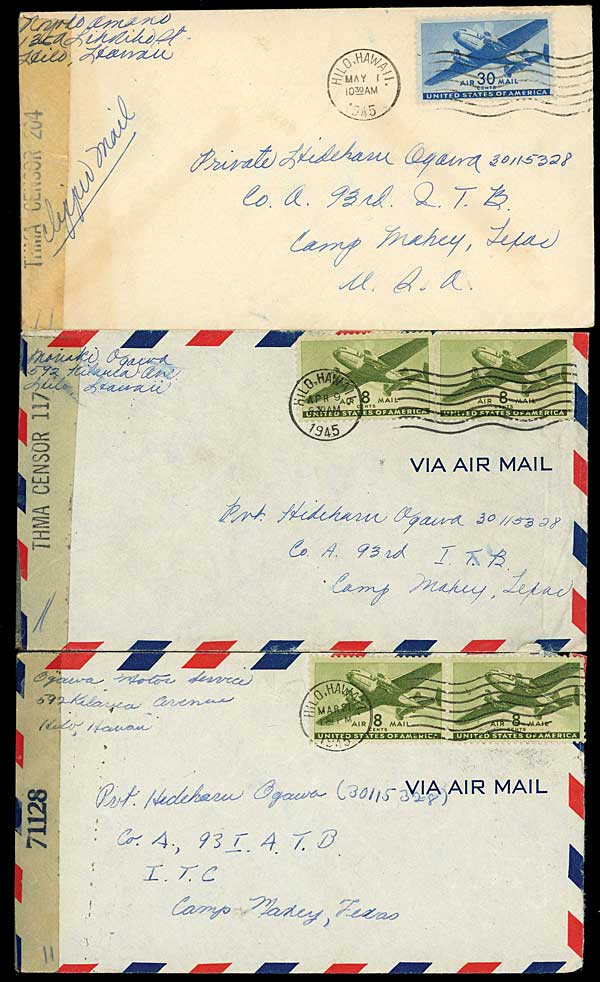 Amano
Hilo, Hawaii
HILO, HAWAII.
MAY 1
10 30 AM
1945
30
CENTS
AIR MAIL
UNITED STATES OF AMERICA
THMA CENSOR 204
Clipper Mail
Private Hideharu Ogawa 30115328
Co. A. 93rd I. T. B.
Camp Maxey, Texas
U. S. A.
Ogawa
592 Kilauea Ave.
Hilo, Hawaii
HILO, HAWAII.
APR 9
AM
1945
8
CENTS
AIR MAIL
UNITED STATES OF AMERICA
8
CENTS
AIR MAIL
UNITED STATES OF AMERICA
THMA CENSOR 117
VIA AIR MAIL
Pvt. Hideharu Ogawa 30115328
Co. A. 93rd I. T. B.
Camp Maxey, Texas
Ogawa Motor Service
592 Kilauea Avenue
Hilo, Hawaii
HILO, HAWAII
MAR 21
PM
1945
8
CENTS
AIR MAIL
UNITED STATES OF AMERICA
8
CENTS
AIR MAIL
UNITED STATES OF AMERICA
71128
VIA AIR MAIL
Pvt. Hideharu Ogawa (30115328)
Co. A., 93 I. A. T. B
I. T. C
Camp Maxey, Texas